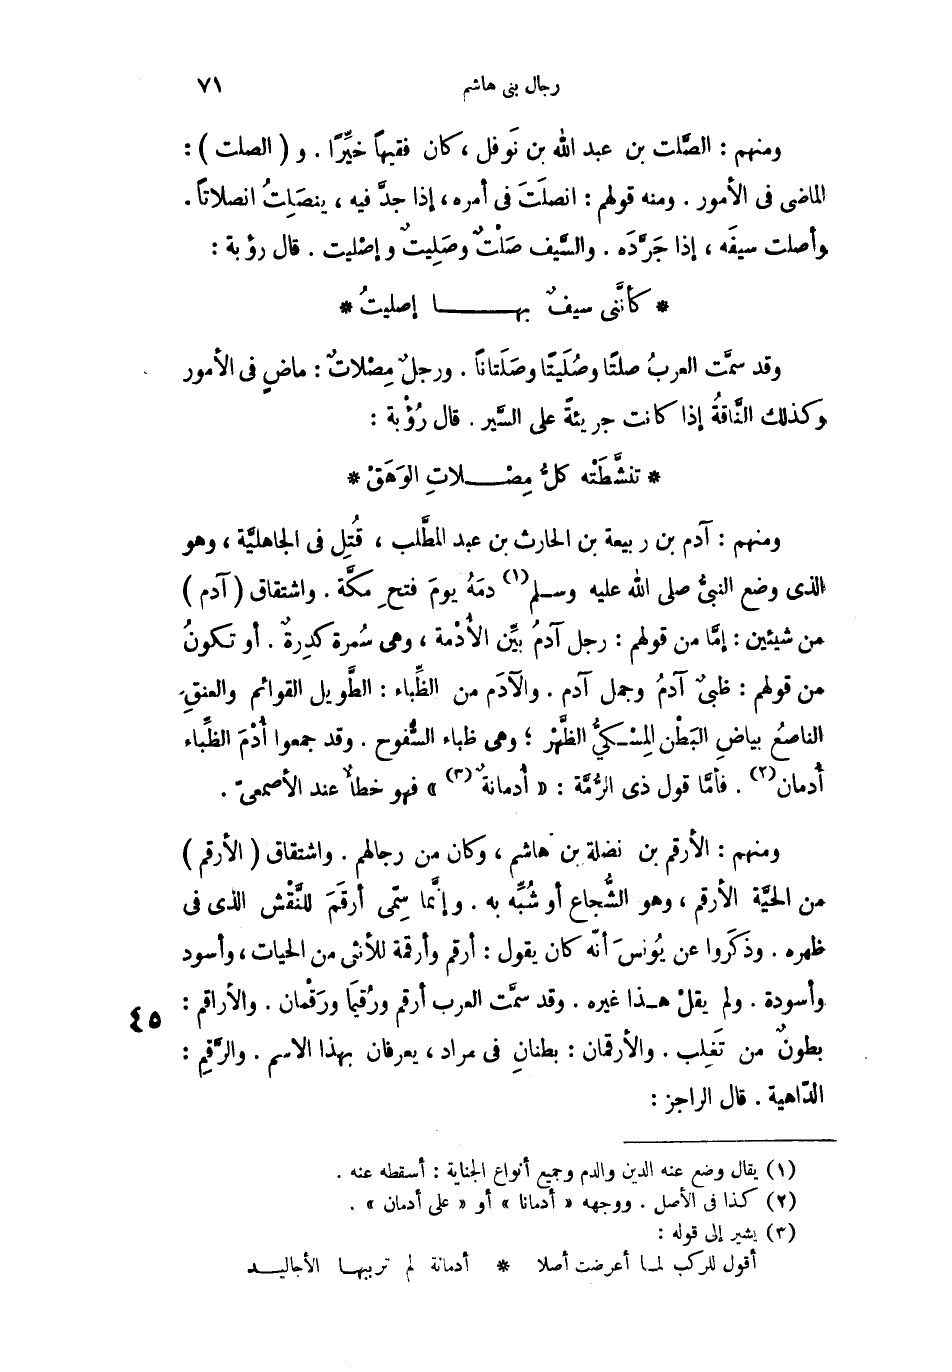 رجال بنى هاشم ٧١
ومنهم : الصَّلت بن عبد الله بن نَوفل ، كان فقيهاً خيِّرًا . و ( الصلت ) :
الماضى فى الأمور . ومنه قولهم : انصلَتَ فى أمره ، إذا جدَّ فيه ، ينصَلِتُ انصلاتاً .
وأصلت سيفَه ، إذا جَرَّدَه . والسَّيف صَلْتٌ وصَلِيتٌ وإصْليت . قال رؤبة :
* كأنَّنى سيفٌ بهــــا إصليتُ *
وقد سمَّت العربُ صلتًا وصُلَيتًا وصَلَتانًا . ورجلٌ مِصْلاتٌ : ماضٍ فى الأمور
وكذلك النَّاقةُ إذا كانت جريئةً على السَّير . قال رُؤْبة :
* تنشَّطَتْه كلُّ مِصْــلاتِ الوَهَقْ *
ومنهم : آدم بن ربيعة بن الحارث بن عبد المطَّلب ، قُتِل فى الجاهليَّة ، وهو
الذى وضع النبىُّ صلى الله عليه وسلم(١) دمَهُ يومَ فتحِ مكَّة . واشتقاق ( آدم )
من شيئين : إمَّا من قولهم : رجل آدمُ بيِّن الأُدْمة ، وهى سُمرة كدِرةٌ . أو تكونُ
من قولهم : ظبىٌ آدمُ وجمل آدم . والآدَم من الظِّباء : الطَّويل القوائم والعنقِ
الناصعُ بياضِ البَطْن المِسْكيُّ الظَّهْر ؛ وهى ظباء السُّفوح . وقد جمعوا أُدْمَ الظِّباء
أُدمان(٢) . فأمَّا قول ذى الرُّمَّة : « أُدمانةٌ(٣) » فهو خطأٌ عند الأصمعىّ .
ومنهم : الأرقم بن نضلة بن هاشم ، وكان من رجالهم . واشتقاق ( الأرقم )
من الحيَّة الأرقم ، وهو الشُّجاع أو شُبِّه به . وإنَّما سمِّى أرقَمَ للنَّقْش الذى فى
ظهره . وذكَروا عن يُونسَ أنّه كان يقول : أرقم وأرقمة للأنثى من الحيات ، وأسود
وأسودة . ولم يقلْ هــذا غيره . وقد سمَّت العرب أرقم ورُقيمًا ورَقْمان . والأراقم :
٤٥
بطونٌ من تَغلِب . والأرقمان : بطنانِ فى مراد ، يعرفان بهذا الاسم . والرَّقِم :
الدّاهية . قال الراجز :
(١) يقال وضع عنه الدين والدم وجميع أنواع الجناية : أسقطه عنه .
(٢) كذا فى الأصل . ووجهه « أدمانا » أو « على أدمان » .
(٣) يشير إلى قوله :
أقول للركب لمــا أعرضت أصلا * أدمانة لم تربيهــا الأجاليــد